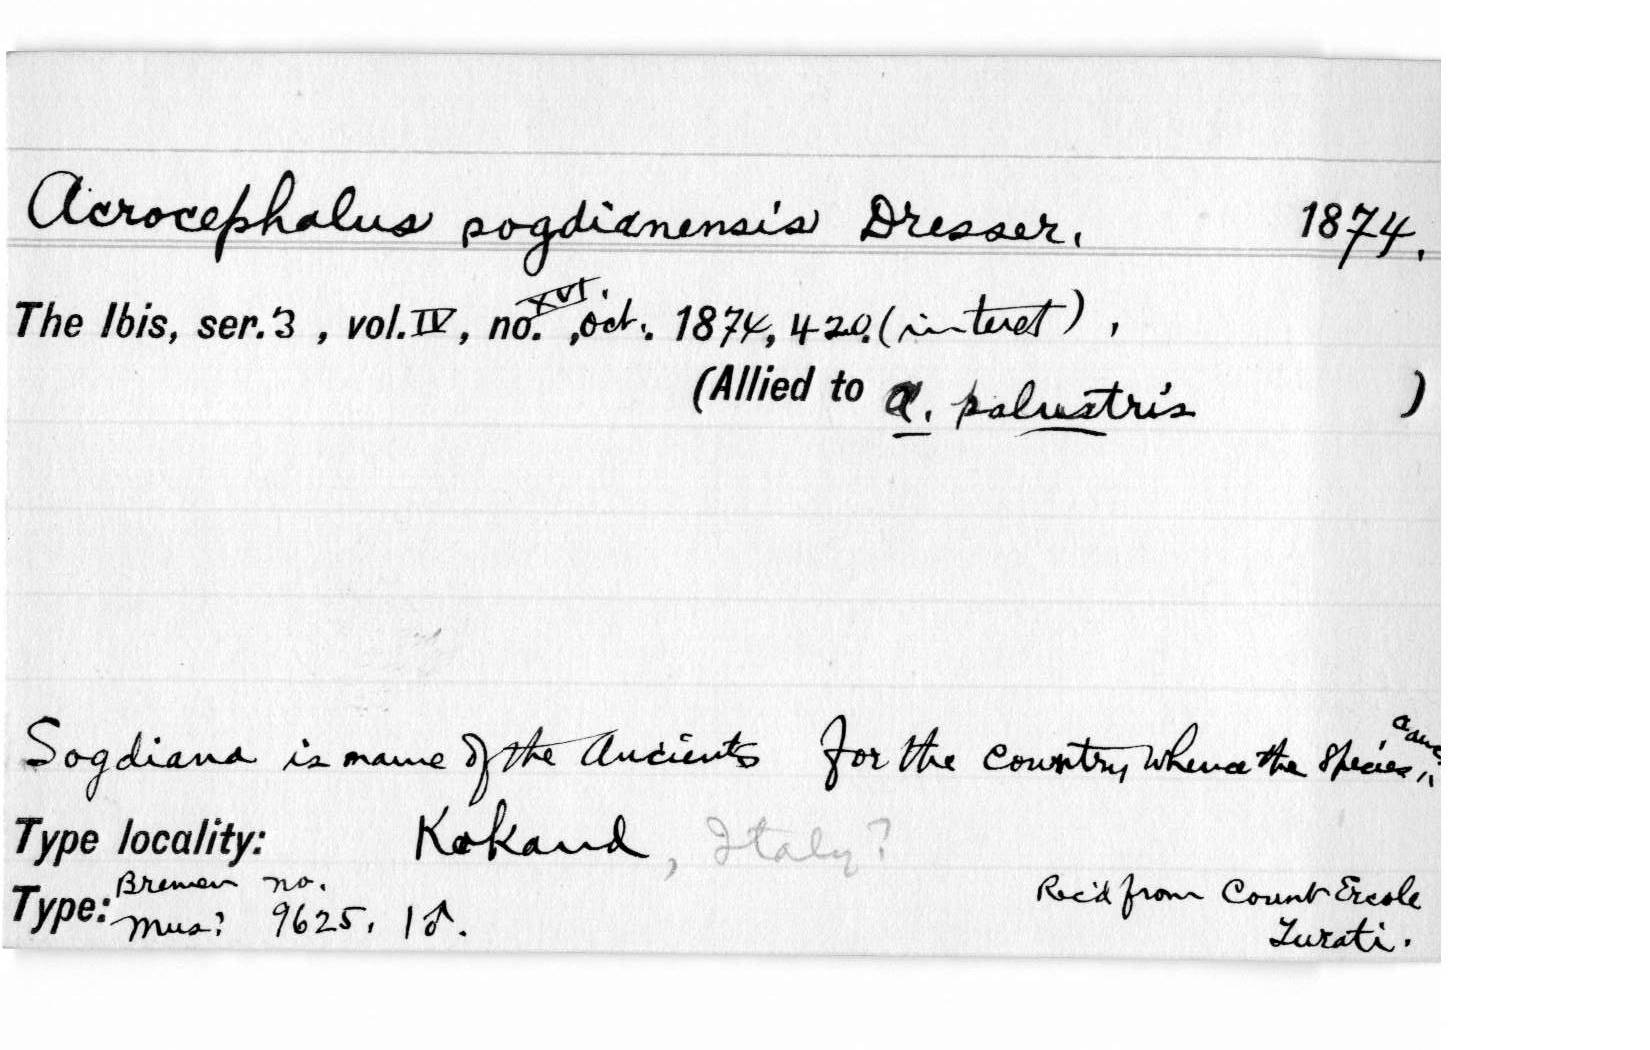 Acrocephalus sogdianensis Dresser. 1874.
The Ibis, ser. 3, vol. IV, no. XVI., Oct. 1874, 420. (in text),
(Allied to A. palustris )
Sogdiana is name of the Ancients for the country whence the species came.
Type locality: Kokand, Italy?
Type: Bremen Mus? no. 9625. 1♂. Rec'd from Count Ercole
Turati.